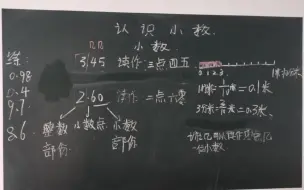 认识小数
小数
练:
0.98
0.4
9.7
8.6
3.45 读作:三点四五
2.60 读作:二点六零
整数部份
小数点
小数部份
0 1 2 3
1分米=1/10米=0.1米
3分米=3/10米=0.3米
一位小数